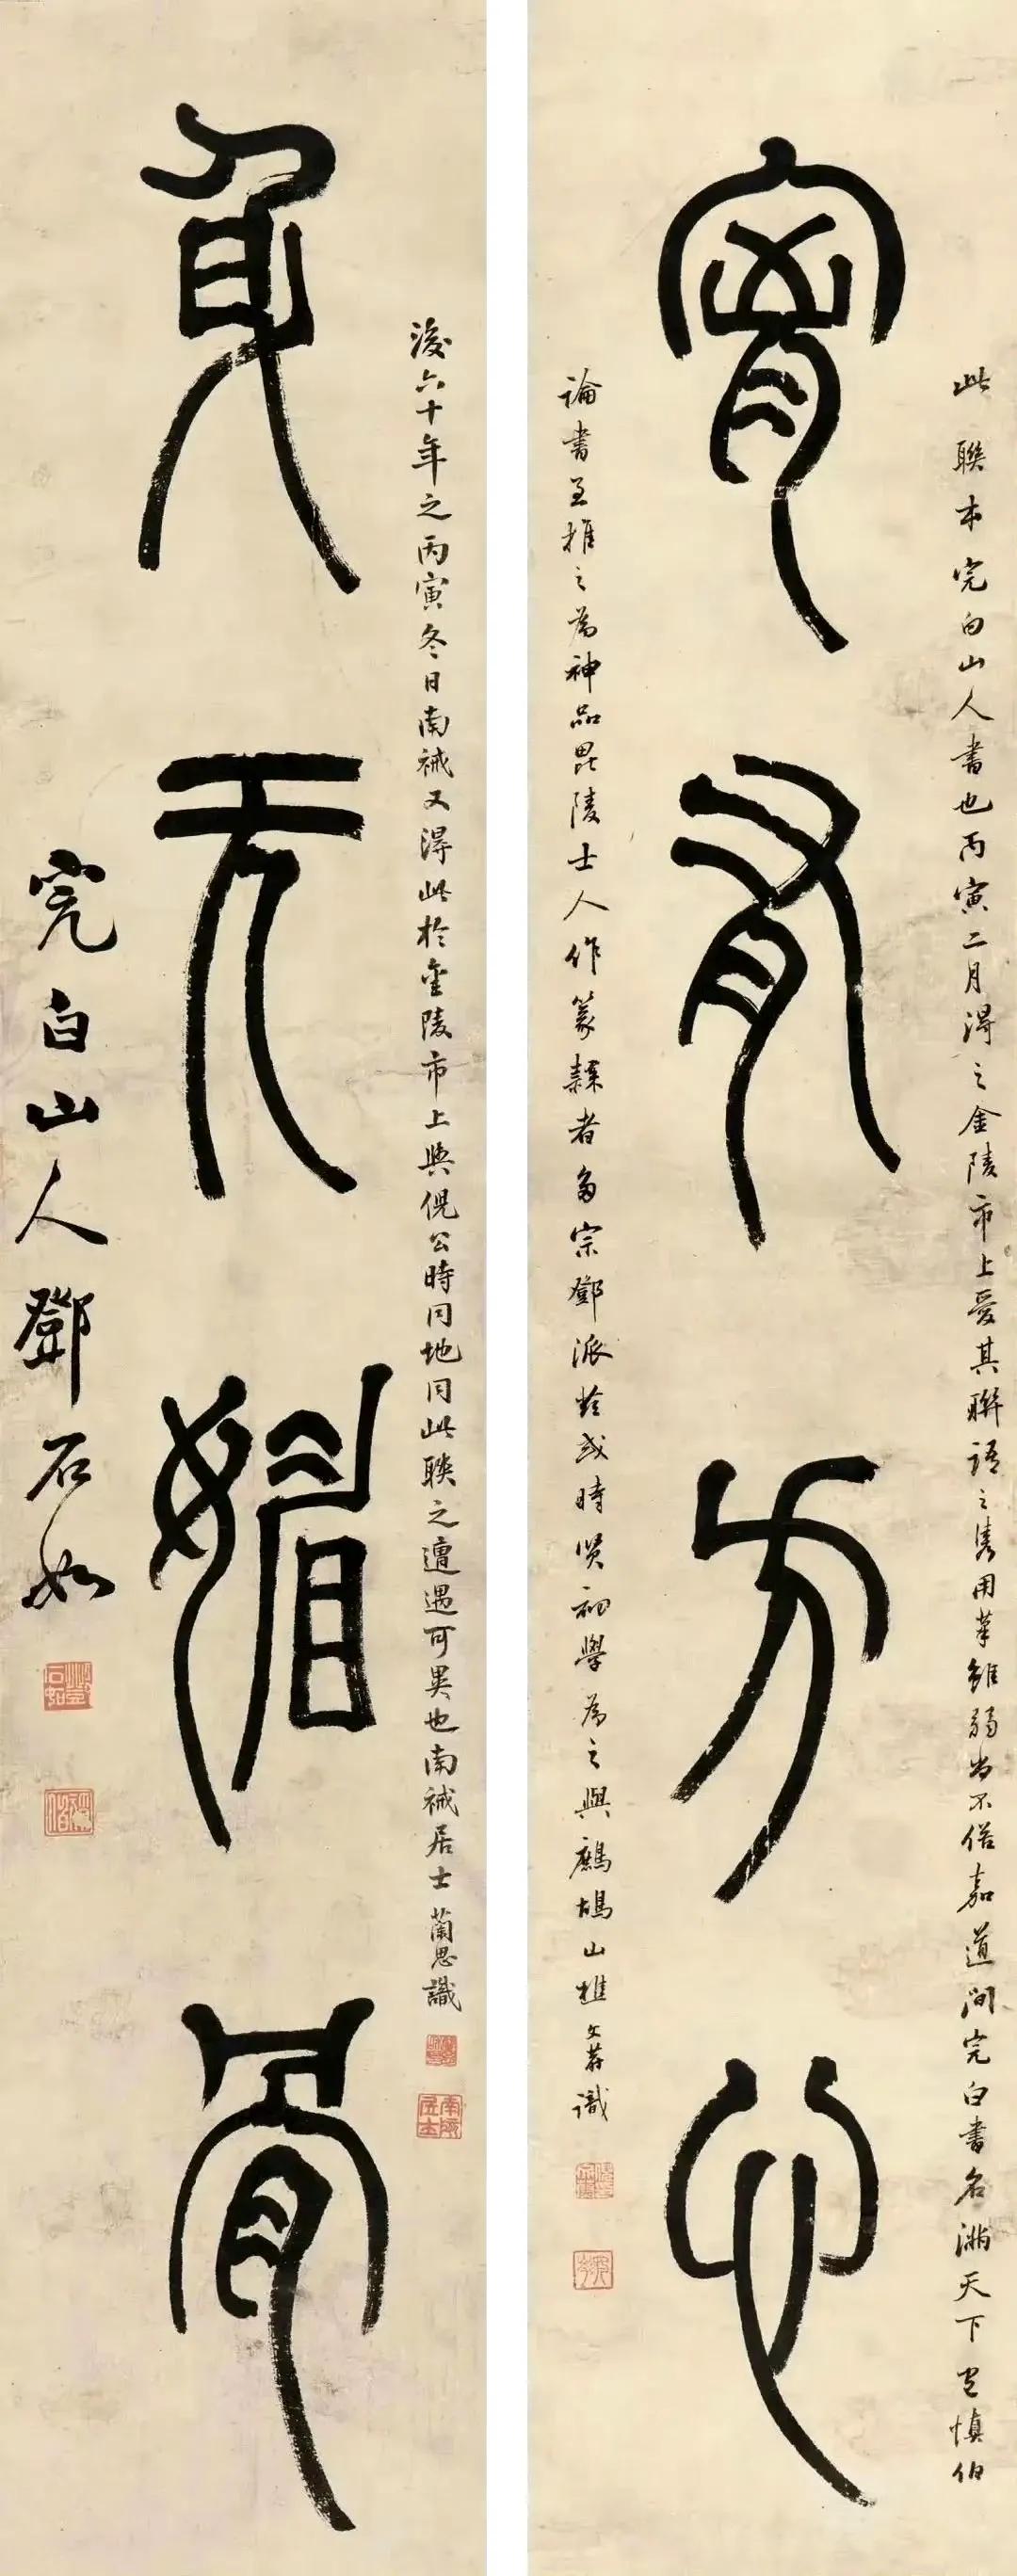 此聯本完白山人書也丙寅二月得之金陵市上愛其聯語之雋用筆雖弱尚不俗嘉道間完白書名滿天下包慎伯
胷有方心
論書至推之為神品毘陵士人作篆隸者多宗鄧派殆或時賢初學為之與鷓鴣山樵文蔚識
後六十年之丙寅冬日南祴又得此於金陵市上與倪公時同地同此聯之遭遇可異也南祴居士蘭思識
南祴居士
身无媚骨
完白山人鄧石如
鄧石如